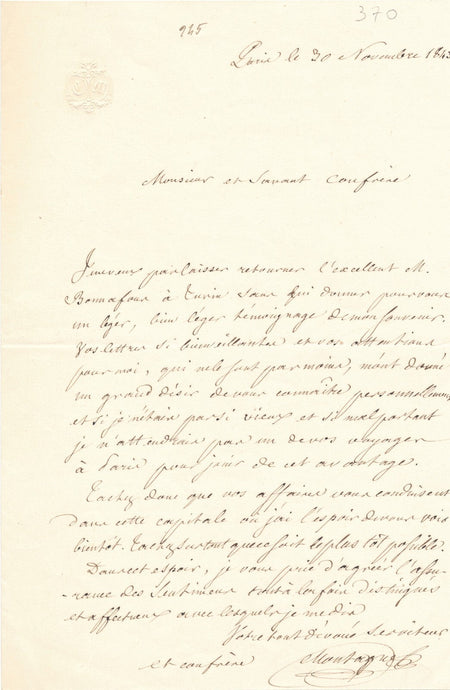 945
370
Paris le 30 Novembre 1843
Monsieur et Savant confrère
Je ne veux pas laisser retourner l'excellent M.
Bonnafous à Turin sans lui donner pour vous
un léger, bien léger témoignage de mon souvenir.
Vos lettres si bienveillantes et vos attentions
pour moi, qui ne le sont pas moins, m'ont donné
un grand désir de vous connaître personnellement
et si je n'étais pas si vieux et si mal portant
je n'attendrais pas un de vos voyages
à Paris pour jouir de cet avantage.
Tachez donc que vos affaires vous conduisent
dans cette capitale où j'ai l'espoir de vous voir
bientôt. Tachez surtout que ce soit le plus tôt possible.
Dans cet espoir, je vous prie d'agréer l'assu-
-rance des Sentimens tout à la fois distingués
et affectueux avec lesquels je me dis
Votre tout dévoué Serviteur
et confrère Montagne